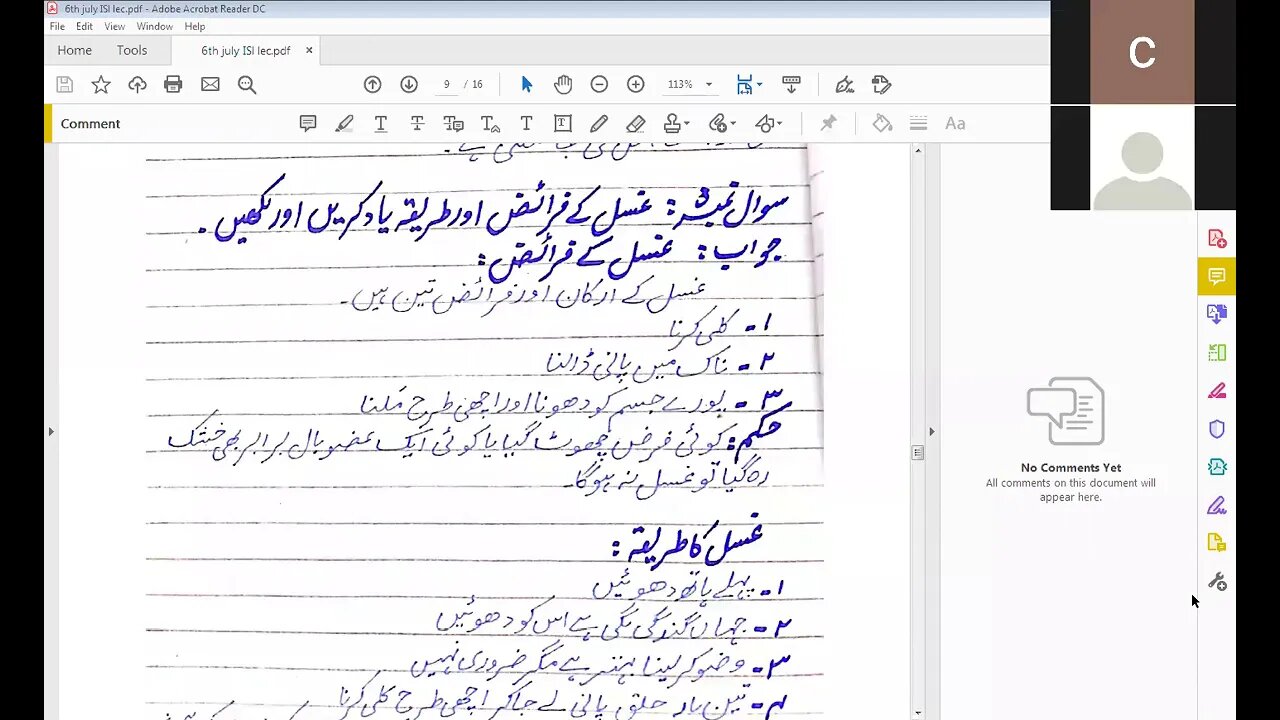 6th july ISI lec.pdf - Adobe Acrobat Reader DC
File Edit View Window Help
Home Tools 6th july ISI lec.pdf ×
9 / 16 113%
Comment Aa
C
سوال نمبر ۵: غسل کے فرائض اور طریقہ یاد کریں اور لکھیں ۔
جواب: غسل کے فرائض:
غسل کے ارکان اور فرائض تین ہیں۔
۱- کلی کرنا
۲- ناک میں پانی ڈالنا
۳- پورے جسم کو دھونا اور اچھی طرح مَلنا
حکم: کوئی فرض چھوٹ گیا یا کوئی ایک عضو بال برابر بھی خشک
رہ گیا تو غسل نہ ہوگا۔
غسل کا طریقہ:
۱- پہلے ہاتھ دھوئیں
۲- جہاں گندگی لگی ہے اس کو دھوئیں
۳- وضو کر لینا بہتر ہے مگر ضروری نہیں
۴- تین بار حلق پانی لے جا کر اچھی طرح کلی کرنا
No Comments Yet
All comments on this document will
appear here.